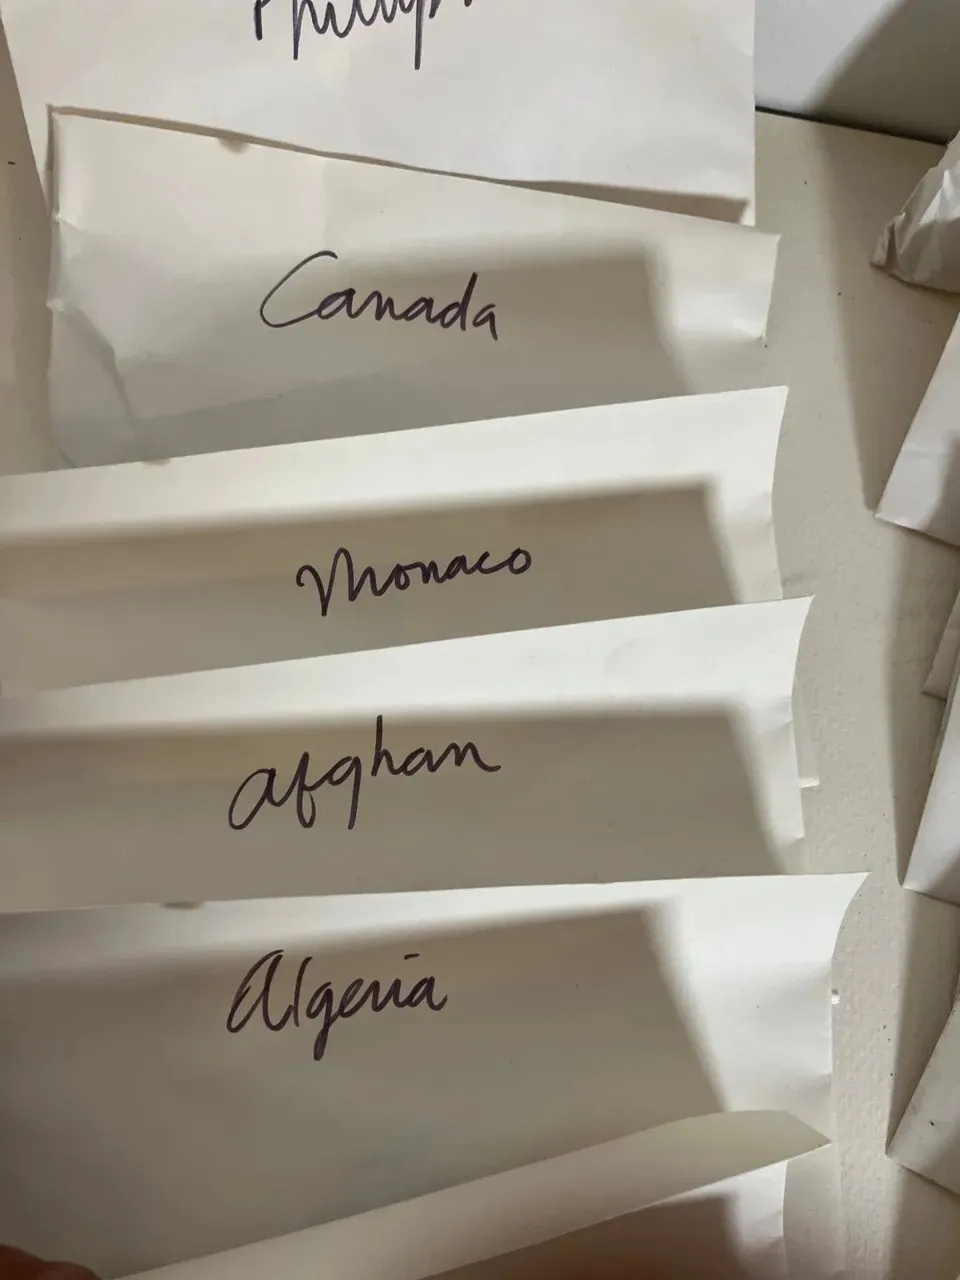 Canada
Monaco
Afghan
Algeria